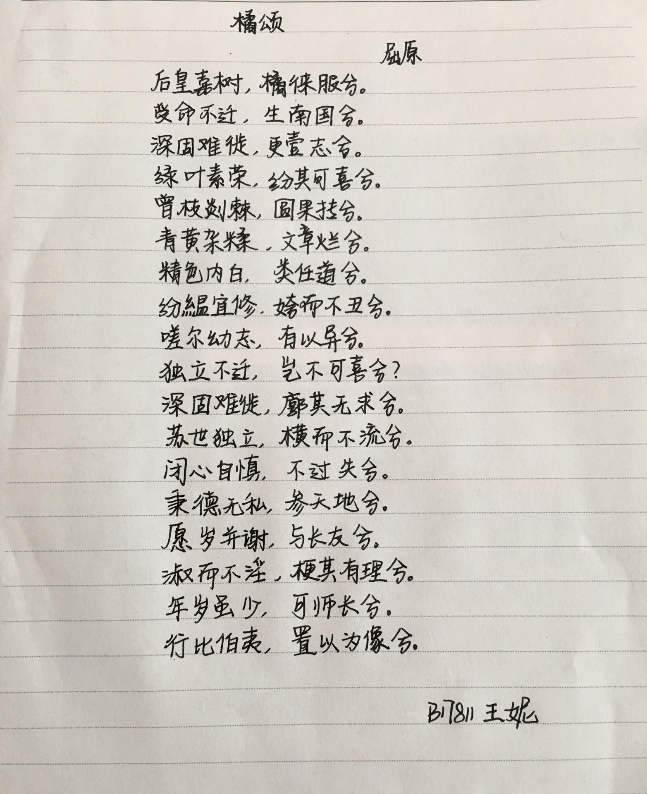 橘颂
屈原
后皇嘉树，橘徕服兮。
受命不迁，生南国兮。
深固难徙，更壹志兮。
绿叶素荣，纷其可喜兮。
曾枝剡棘，圆果抟兮。
青黄杂糅，文章烂兮。
精色内白，类任道兮。
纷緼宜修，姱而不丑兮。
嗟尔幼志，有以异兮。
独立不迁，岂不可喜兮？
深固难徙，廓其无求兮。
苏世独立，横而不流兮。
闭心自慎，不过失兮。
秉德无私，参天地兮。
愿岁并谢，与长友兮。
淑而不淫，梗其有理兮。
年岁虽少，可师长兮。
行比伯夷，置以为像兮。
B17811 王妮